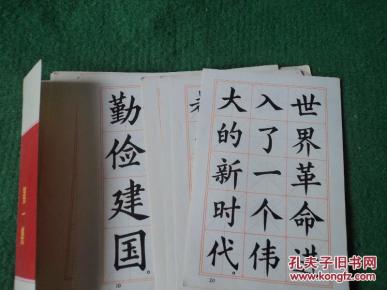 世界革命进
入了一个伟
大的新时代
20
勤俭建国
10
孔夫子旧书网